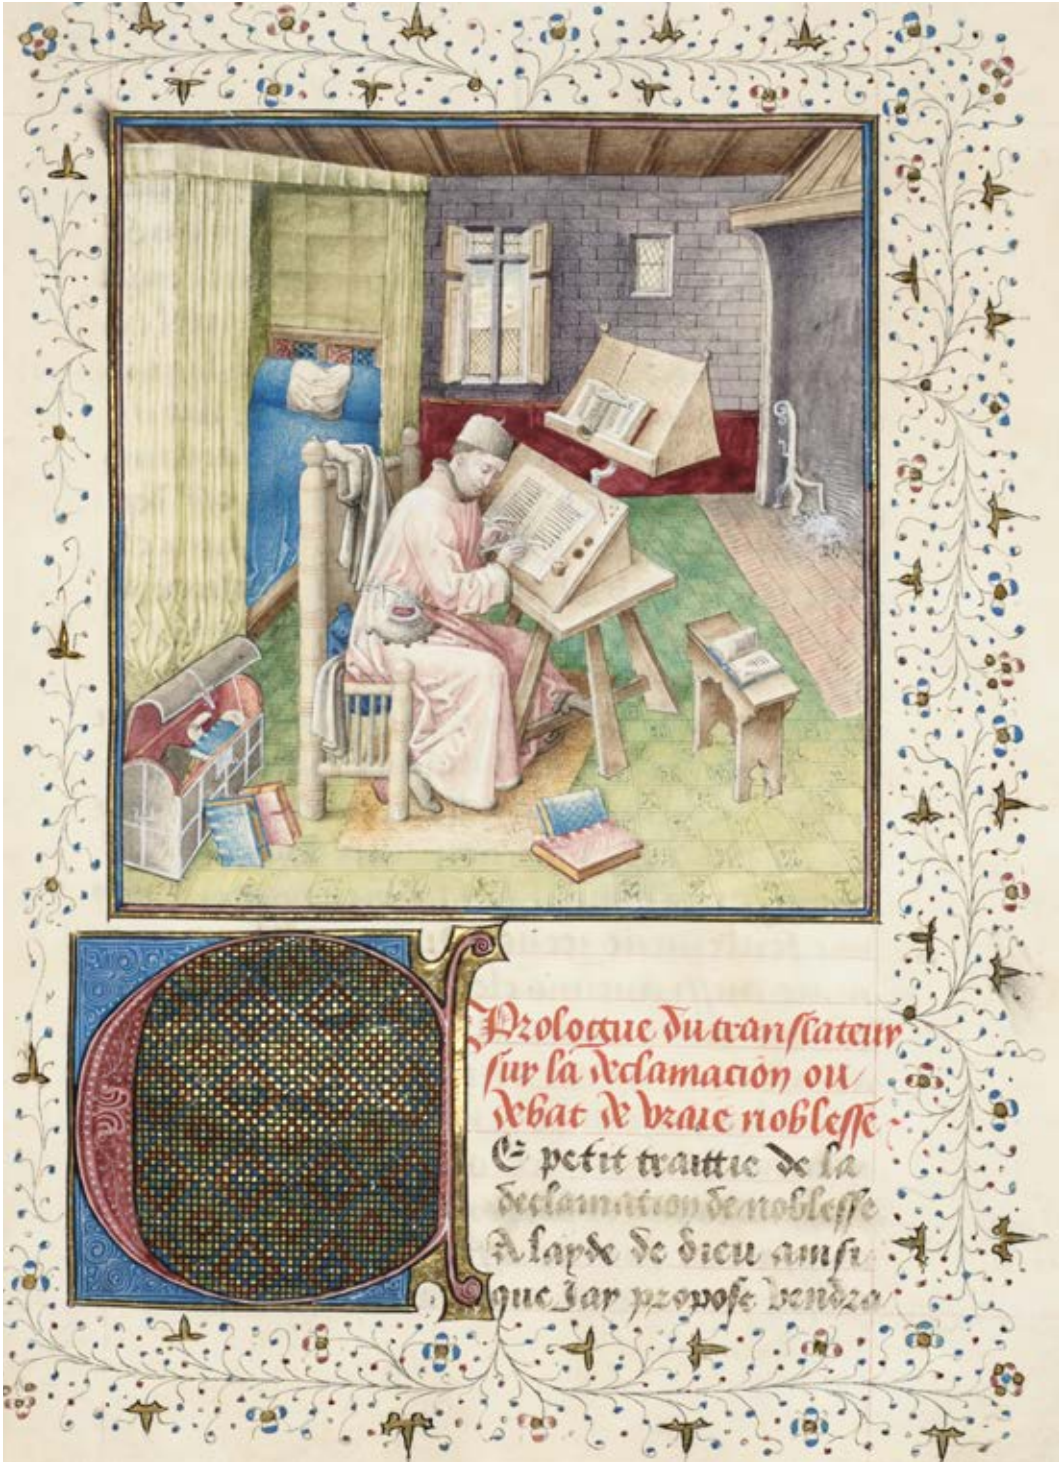 Prologue du translateur
sur la declamacion ou
debat de vraie noblesse
E petit traittie de la
declamation de noblesse
A layde de dieu ainsi
que Jay propose vendra